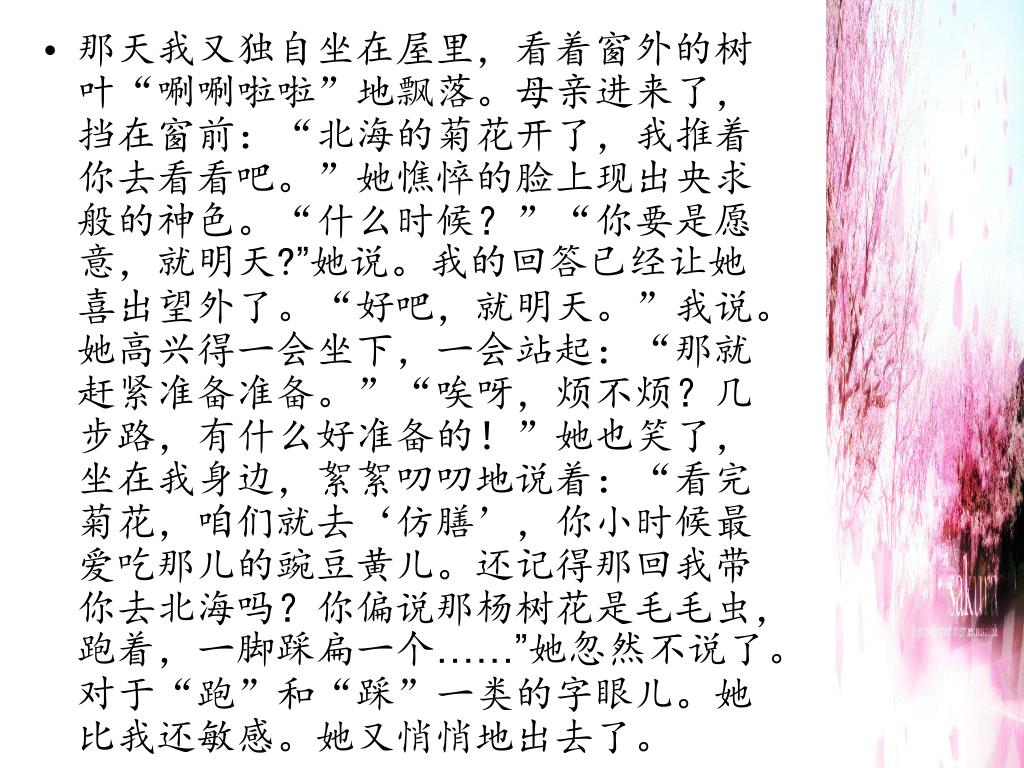 • 那天我又独自坐在屋里，看着窗外的树
叶“唰唰啦啦”地飘落。母亲进来了，
挡在窗前：“北海的菊花开了，我推着
你去看看吧。”她憔悴的脸上现出央求
般的神色。“什么时候？”“你要是愿
意，就明天?”她说。我的回答已经让她
喜出望外了。“好吧，就明天。”我说。
她高兴得一会坐下，一会站起：“那就
赶紧准备准备。”“唉呀，烦不烦？几
步路，有什么好准备的！”她也笑了，
坐在我身边，絮絮叨叨地说着：“看完
菊花，咱们就去‘仿膳’，你小时候最
爱吃那儿的豌豆黄儿。还记得那回我带
你去北海吗？你偏说那杨树花是毛毛虫，
跑着，一脚踩扁一个……”她忽然不说了。
对于“跑”和“踩”一类的字眼儿。她
比我还敏感。她又悄悄地出去了。
sakura